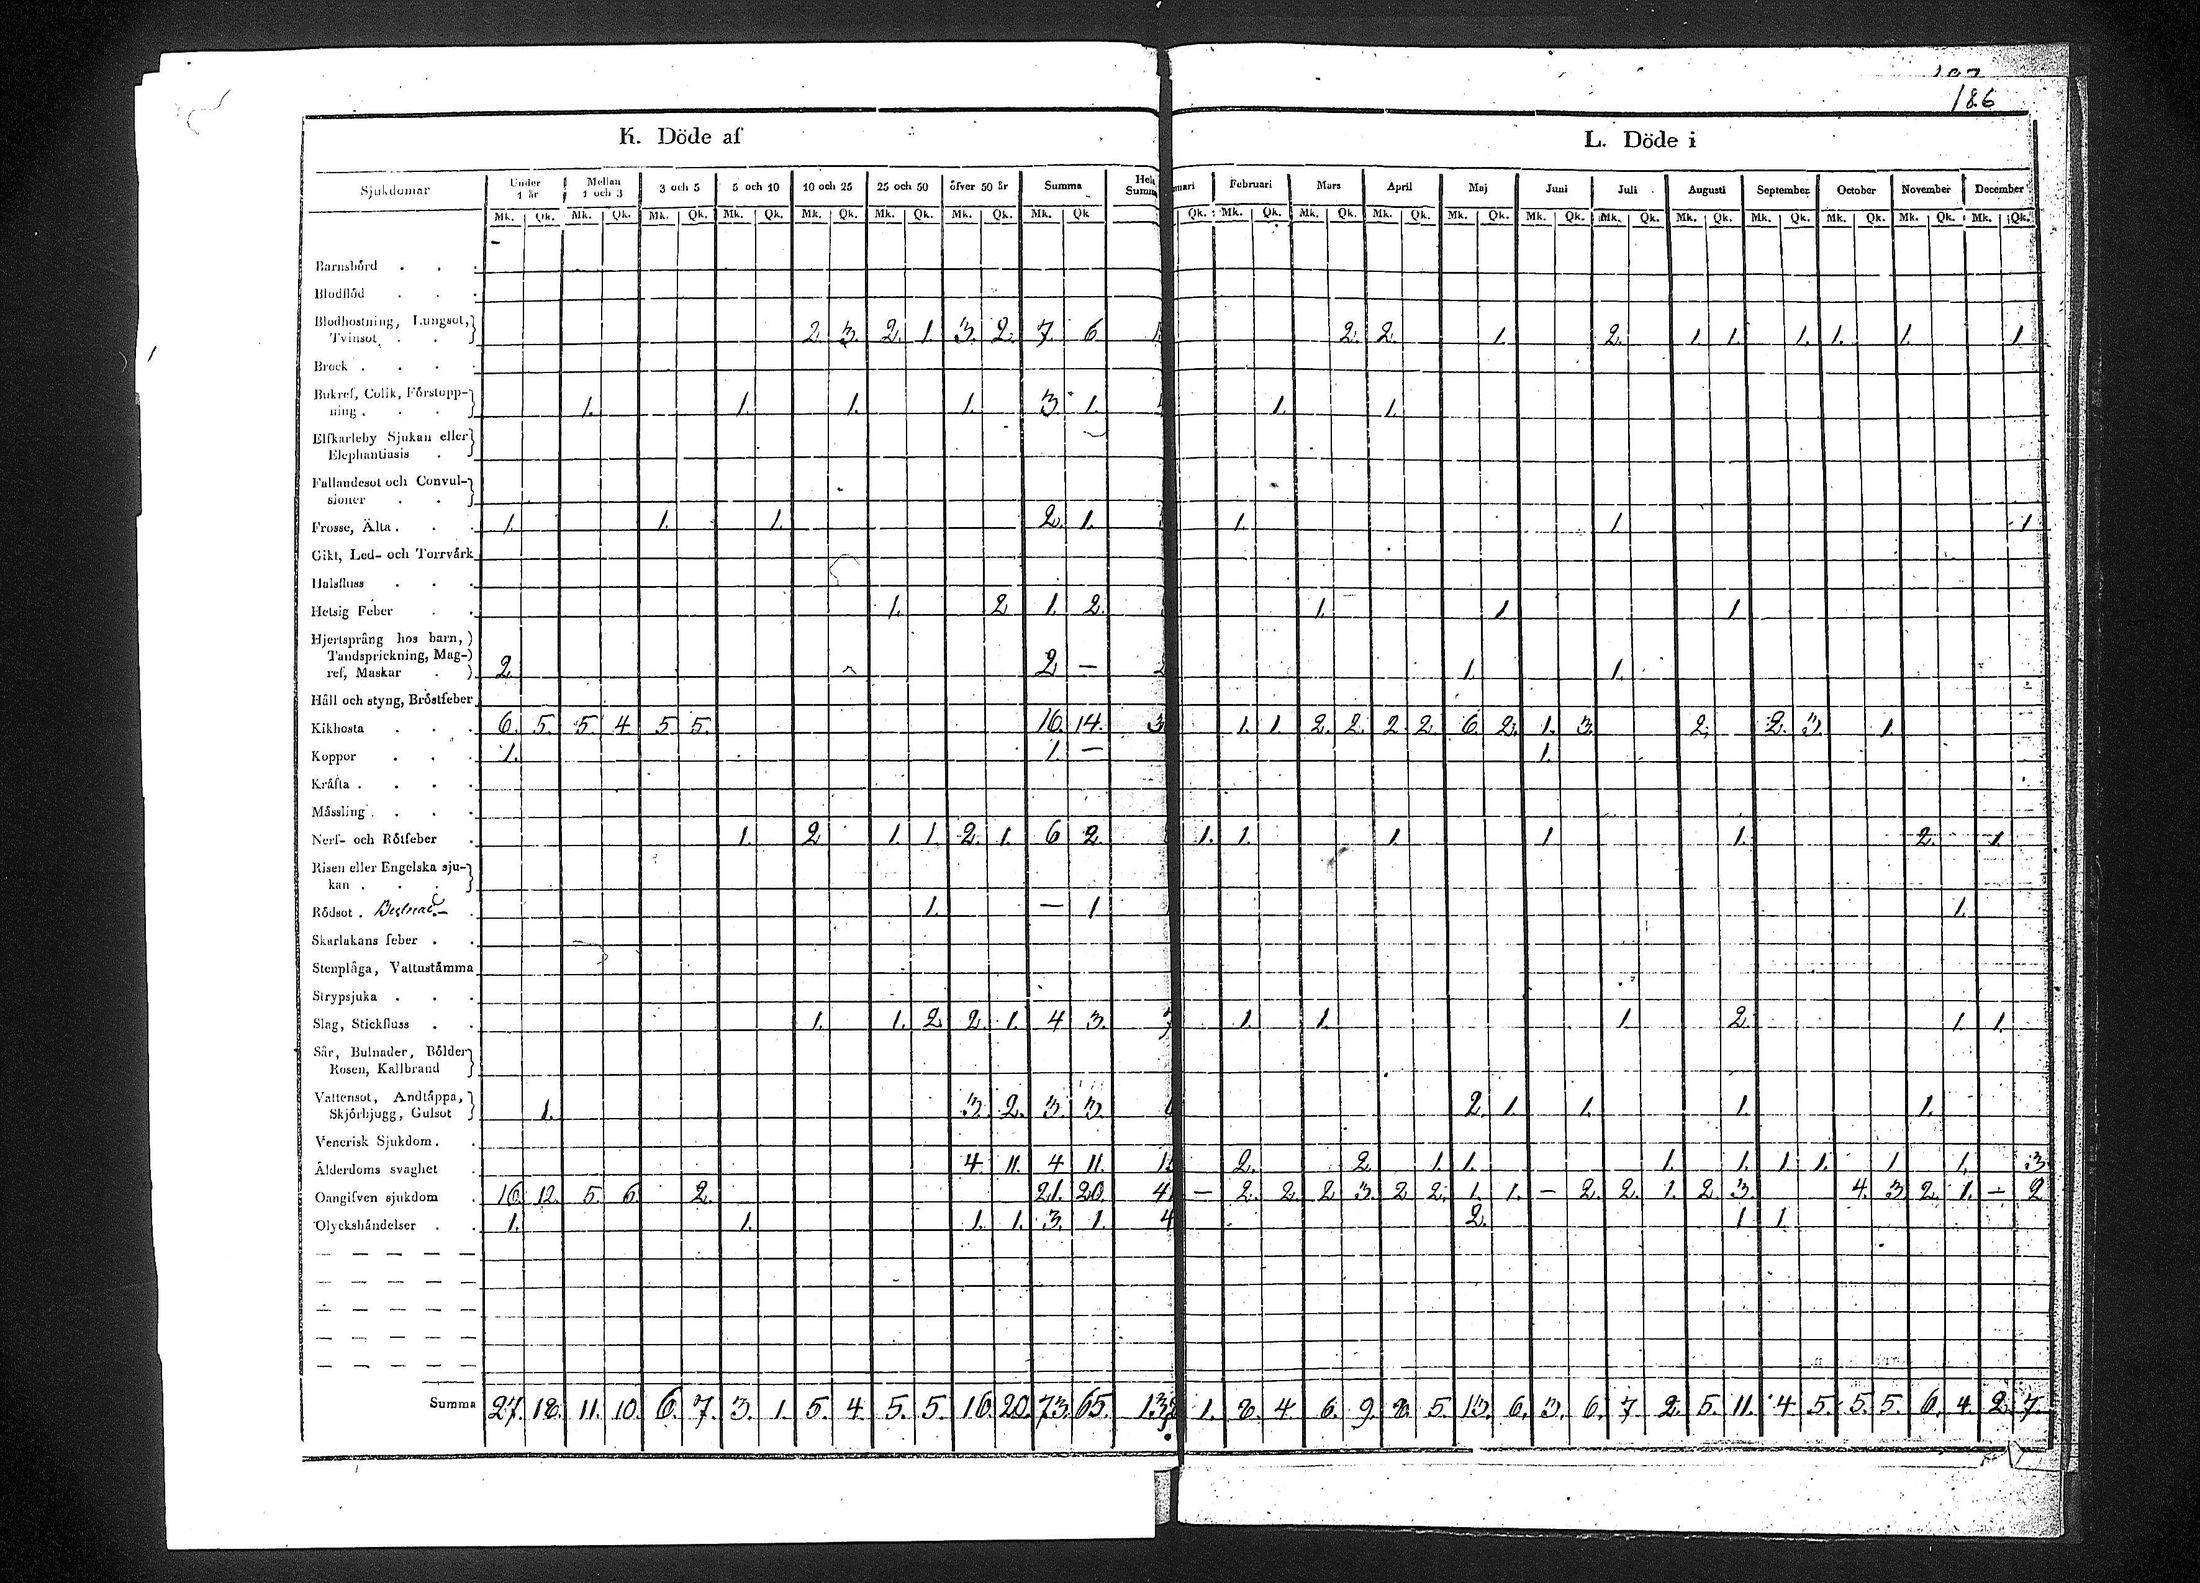 186
K. Döde af
L. Döde i
Sjukdomar Under 1 år Mellan 1 och 3 3 och 5 5 och 10 10 och 25 25 och 50 öfver 50 år Summa Februari Mars April Maj Juni Juli Augusti September October November December
Mk. Qk. Mk. Qk. Mk. Qk. Mk. Qk. Mk. Qk. Mk. Qk. Mk. Qk. Mk. Qk Qk. Mk. Qk. Mk. Qk. Mk. Qk. Mk. Qk. Mk. Qk. Mk. Qk. Mk. Qk. Mk. Qk. Mk. Qk. Mk. Qk. Mk. Qk.
Barnsbörd
Blodflöd
Blodhostning, Lungsot,
Tvinsot 2. 3. 2. 1. 3. 2. 7. 6 2. 2. 1. 2. 1. 1. 1. 1. 1. 1.
Brock
Bukref, Colik, Förstopp-
ning 1. 1. 1. 1. 3 1. 1. 1.
Elfkarleby Sjukan eller
Elephantiasis
Fallandesot och Convul-
sioner
Frosse, Älta 1. 1. 1. 2. 1. 1. 1. 1
Gikt, Led- och Torrvärk
Halsfluss
Hetsig Feber 1. 2 1. 2. 1. 1. 1.
Hjertsprång hos barn,
Tandsprickning, Mag-
ref, Maskar 2. 2 — 1. 1.
Håll och styng, Bröstfeber
Kikhosta 6. 5. 5. 4. 5. 5. 16. 14. 1. 1. 2. 2. 2. 2. 6. 2. 1. 3. 2. 2. 3. 1.
Koppor 1. 1. — 1.
Kräfta
Mässling
Nerf- och Rötfeber 1. 2 1. 1. 2. 1. 6 2. 1. 1. 1. 1 1. 2. 1.
Risen eller Engelska sju-
kan
Rödsot 1. — 1 1.
Skarlakans feber
Stenplåga, Vattustämma
Strypsjuka
Slag, Stickfluss 1. 1. 2 2. 1. 4 3. 7 1. 1. 1. 2. 1. 1.
Sår, Bulnader, Bölder
Rosen, Kallbrand
Vattensot, Andtäppa,
Skjörbjugg, Gulsot 1. 3. 2. 3. 3. 2. 1. 1. 1. 1.
Venerisk Sjukdom
Ålderdoms svaghet 4. 11. 4 11. 2. 2. 1. 1. 1. 1. 1. 1. 1 1. 3.
Oangifven sjukdom 16. 12. 5. 6. 2. 21. 20. — 2. 2. 2 3. 2 2. 1. 1. — 2. 2. 1. 2. 3. 4. 3. 2. 1. — 2
Olyckshändelser 1. 1. 1. 1. 3. 1. 4 2. 1 1.
Summa 27. 18. 11. 10. 6. 7. 3. 1. 5. 4. 5. 5. 16. 20. 73. 65. 138 1. 8. 4. 6. 9. 8. 5. 13. 6. 3. 6. 7. 2. 5. 11. 4. 5. 5. 5. 6. 4. 2. 7.